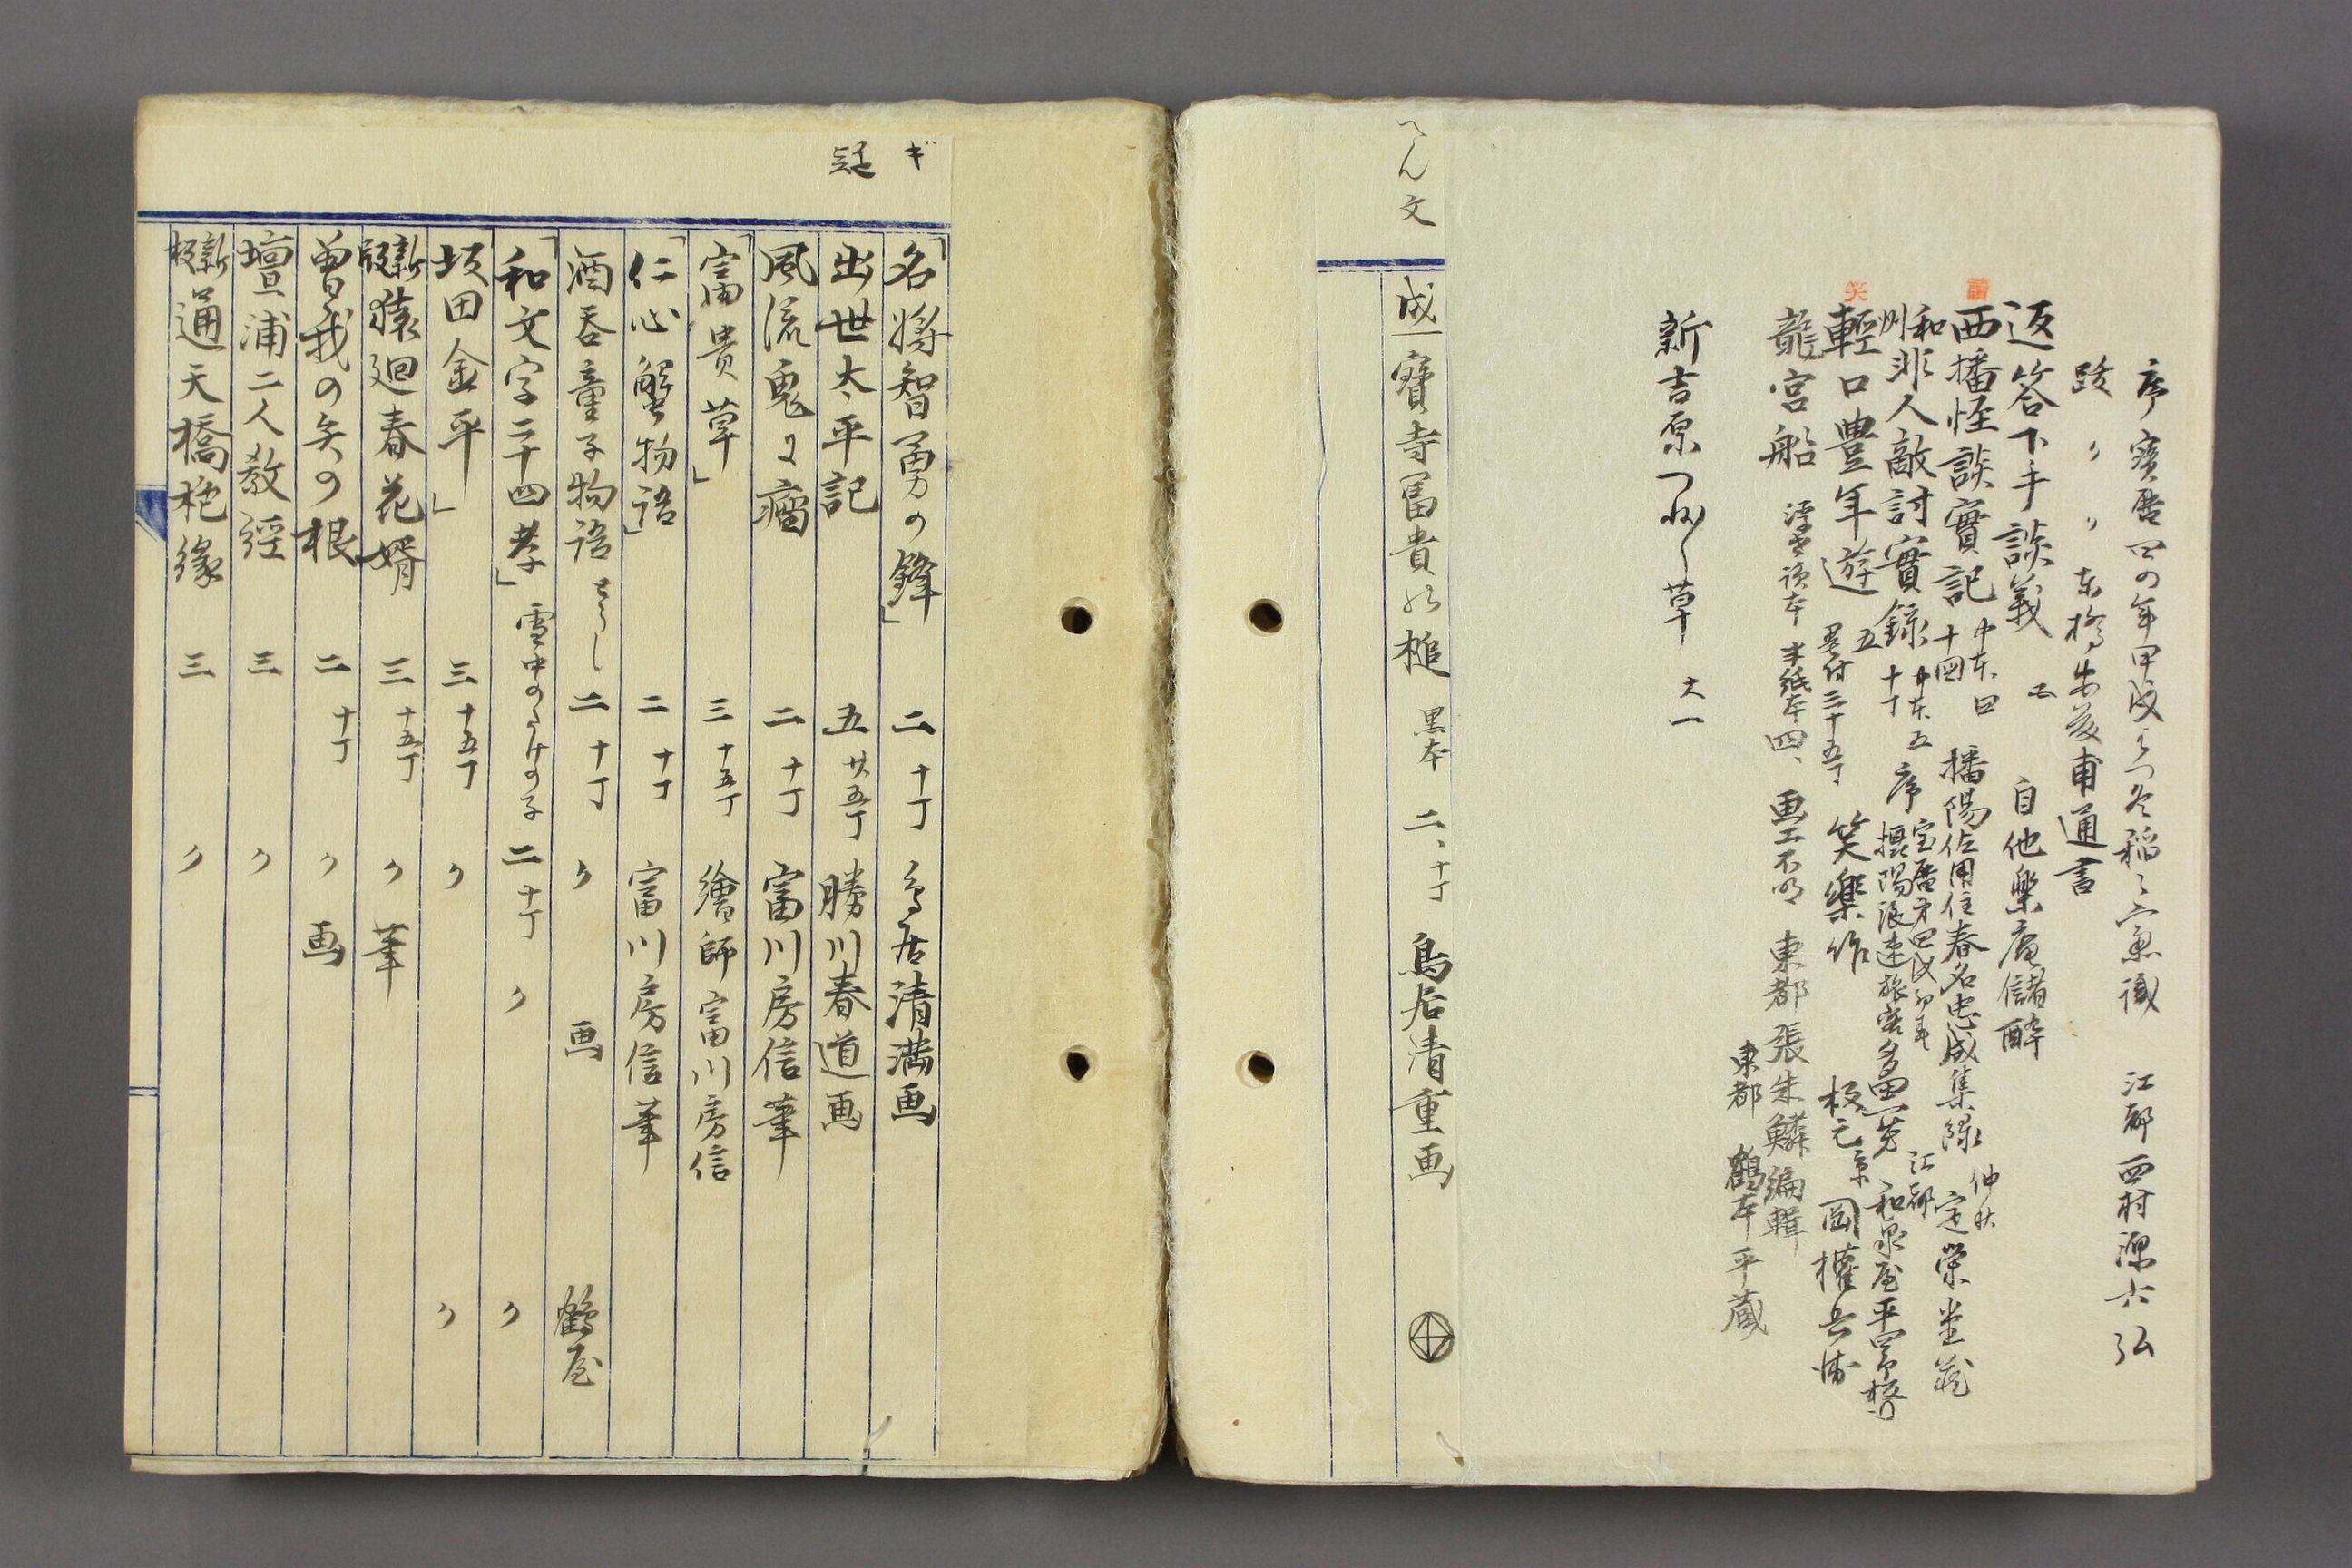 序 寳暦四の年甲戌 冬稲 江都 西村源六弘
跋 〃 〃 東橋 甫通書
返答下手談義 五 自他樂庵儲醉
讀
西播怪談實記 中本四 十四 播陽佐用住春名忠成集録 仲秋 定榮堂藏
和州非人敵討實録 五 十丁 序 摂陽浪速旅客多田一芳 江都 和泉屋平四郎
笑
輕口豊年遊 三十五丁 笑樂作 板元京 岡權兵衛
龍宮船 浮世讀本 半紙本四、 画工不明 東都張朱鱗編輯
東都 鶴本平蔵
新吉原つれ〱草 大一
てん文
成一寶寺冨貴の槌 黒本 二、十丁 鳥居清重画
ギ
疑
「名将智勇の鋒」 二 十丁 鳥居清満画
出世太平記 五 廿五丁 勝川春道画
風流鬼に瘤 二 十丁 富川房信筆
「富貴草」 三 十五丁 繪師富川房信
「仁心蟹物語」 二 十丁 富川房信筆
酒呑童子物語 二 十丁 〃 画 鶴屋
「和文字二十四孝」 雪中のたけの子 二 十丁 〃 〃
「坂田金平」 三 十五丁 〃 〃
新版猿廻春花婿 三 十五丁 〃 筆
曽我の矢の根 二 十丁 〃 画
壇浦二人教經 三 〃
新板通天橋柁縁 三 〃